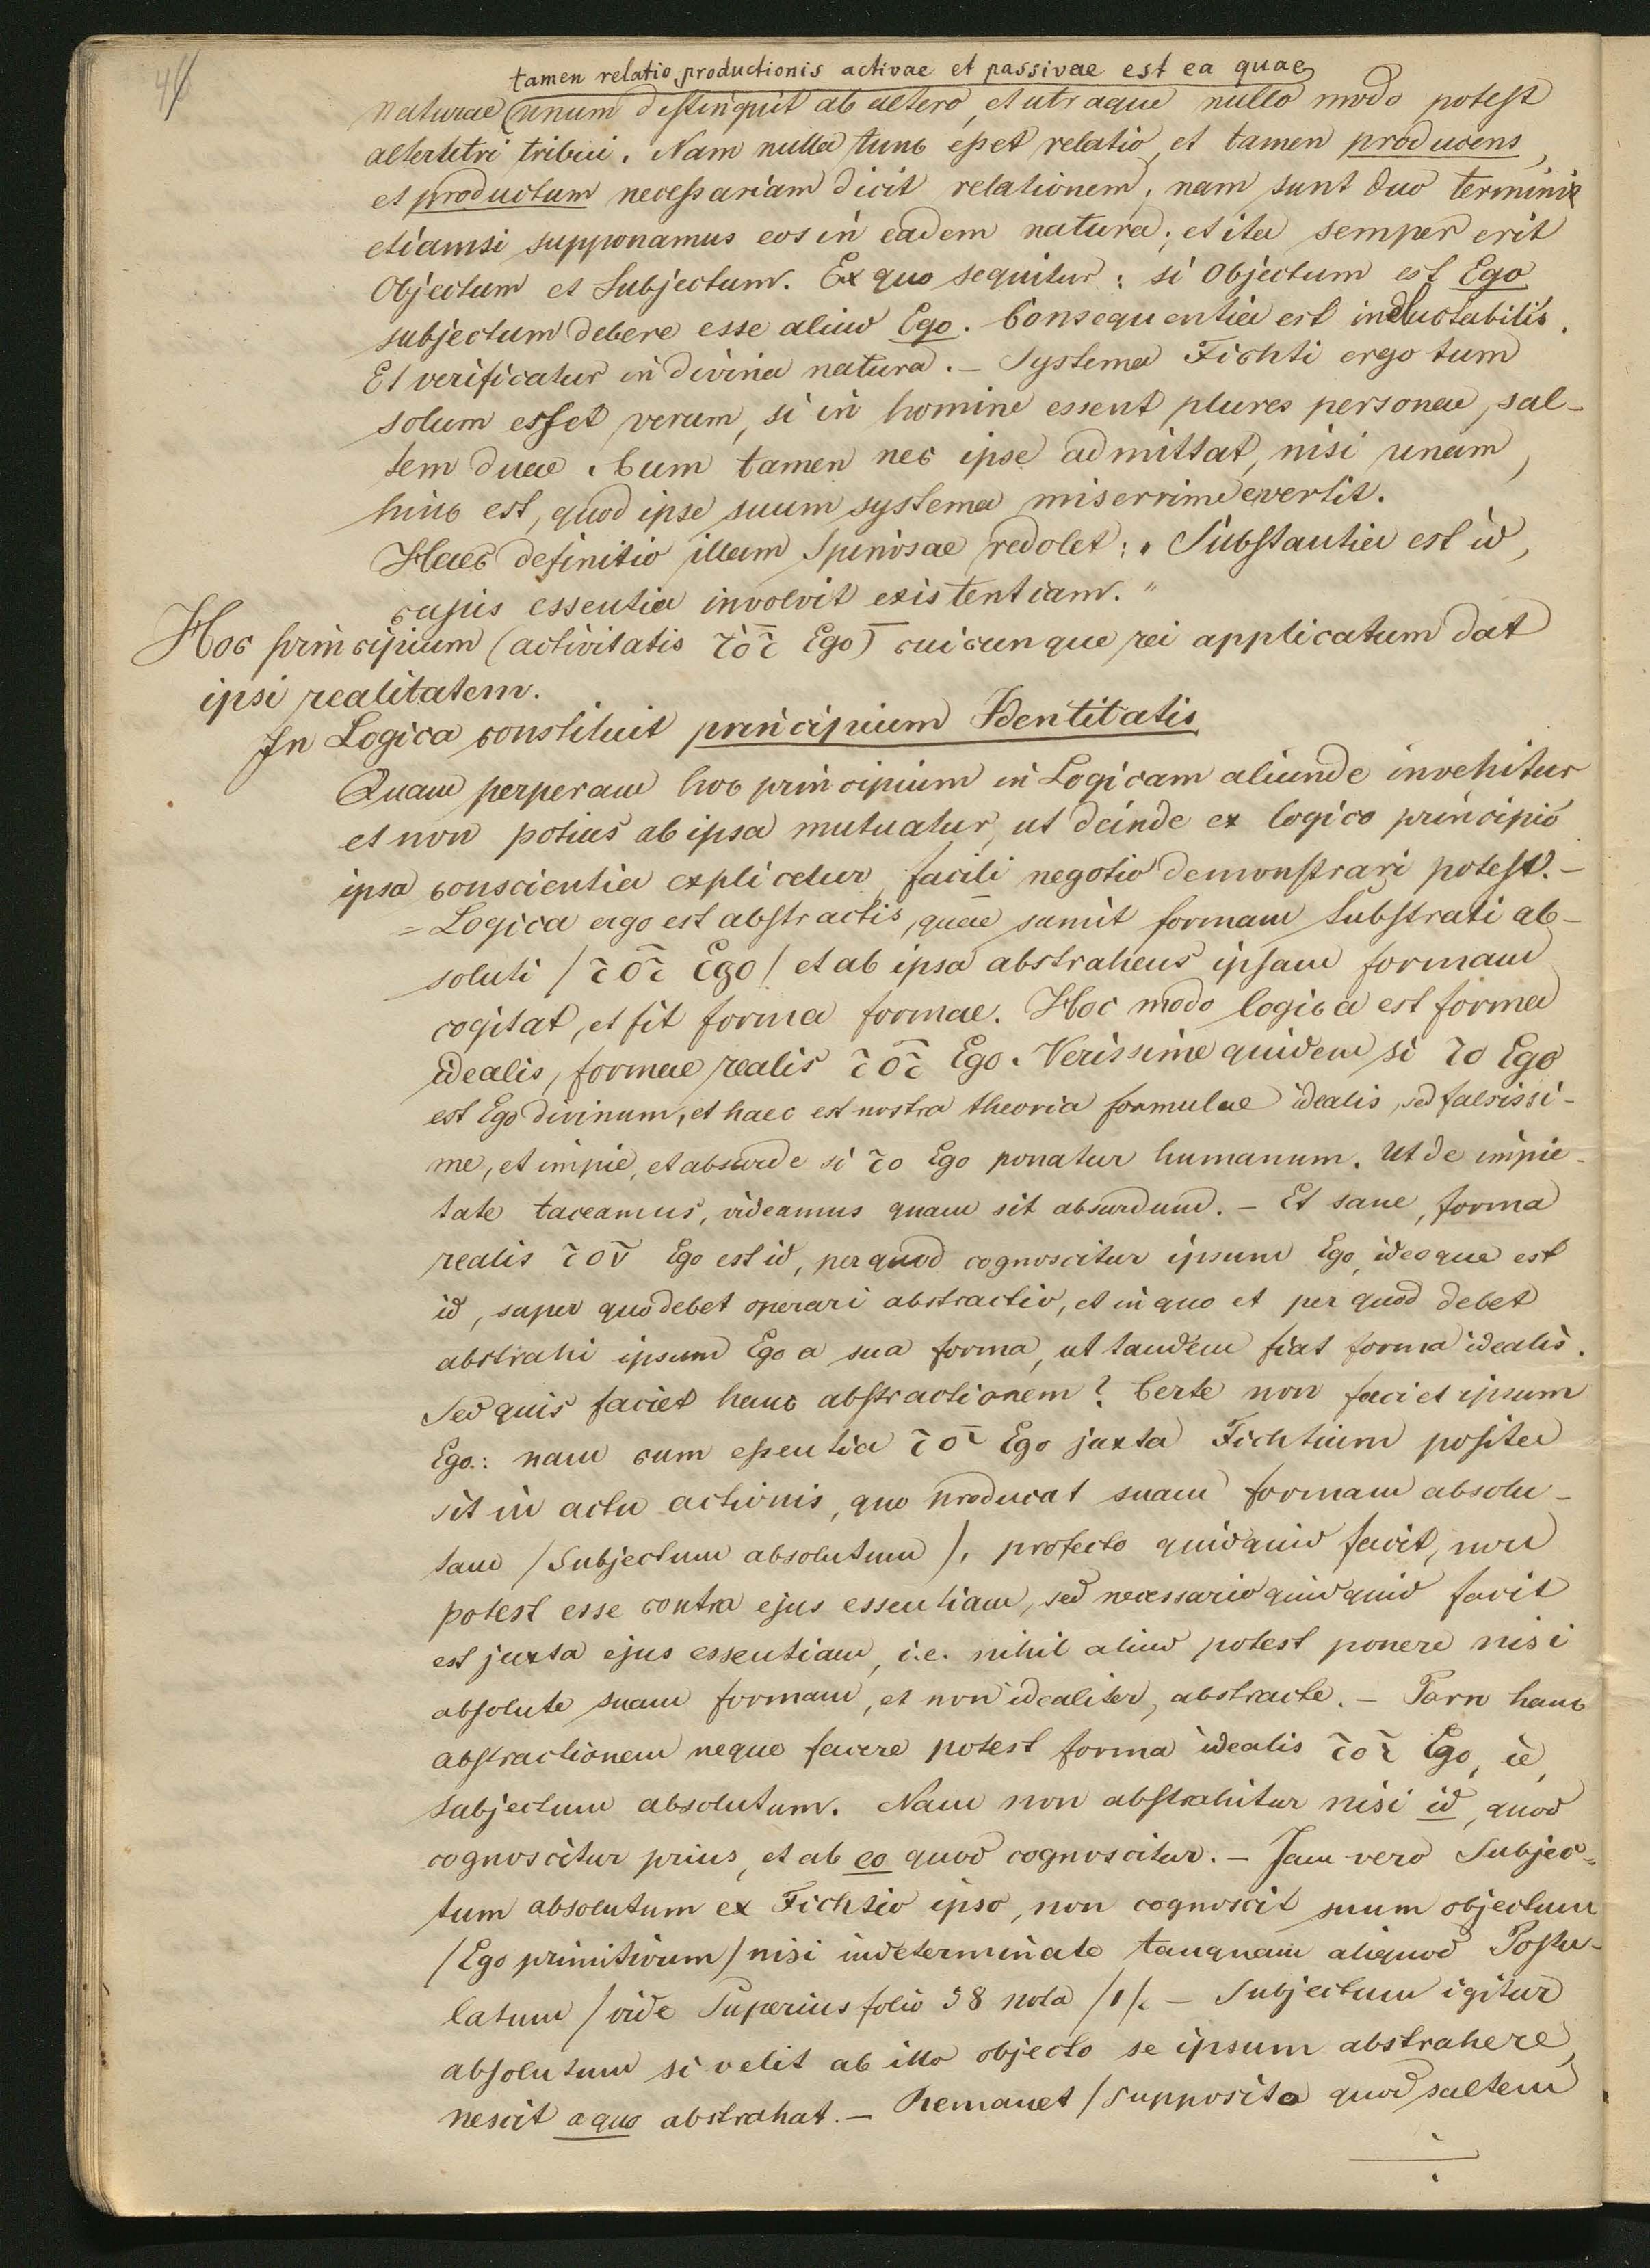 46
tamen relatio productionis activae et passivae est ea quae
naturae unum distinquit ab altero, et utraque nullo modo potest
alterutri tribui. Nam nulla tunc esset relatio, et tamen producens,
et productum necessariam dicit relationem, nam sunt duo termini
etiamsi supponamus eos in eadem natura; et ita semper erit
Objectum et Subjectum. Ex quo sequitur: si Objectum est Ego
subjectum debere esse aliud Ego. Consequentia est ineluctabilis.
Et verificatur in divina natura. – Systema Fichti ergo tum
solum esset verum, si in homine essent plures personae, sal-
tem duae. Cum tamen nec ipse admittat, nisi unam,
hinc est, quod ipse suum systema miserrime evertit.
Haec definitio illam Spinosae redolet: „Substantia est id,
cujus essentia involvit existentiam."
Hoc principium (activitatis τοῦ Ego) cuicunque rei applicatum dat
ipsi realitatem.
In Logica constituit principium Identitatis
Quam perperam hoc principium in Logicam aliunde invehitur
et non potius ab ipsa mutuatur, ut deinde ex logico principio
ipsa conscientia explicetur, facili negotio demonstrari potest. –
= Logica ergo est abstractis, quae sumit formam Substrati ab-
soluti /τοῦ Ego/ et ab ipsa abstrahens ipsam formam
cogitat, et fit forma formae. Hoc modo logica est forma
idealis, formae realis τοῦ Ego. Verissime quidem si το Ego
est Ego divinum, et haec est nostra theoria formulae idealis, sed falsissi-
me, et impie, et absurde si το Ego ponatur humanum. Ut de impie-
tate taceamus, videamus quam sit absurdum. – Et sane, forma
realis τοῦ Ego est id, per quod cognoscitur ipsum Ego, ideoque est
id, super quo debet operari abstractio, et in quo et per quod debet
abstrahi ipsum Ego a sua forma, ut tandem fiat forma idealis.
Sed quis faciet hanc abstractionem? Certe non faciet ipsum
Ego: nam cum essentia τοῦ Ego juxta Fichtium posita
sit in actu actionis, quo producat suam formam absolu-
tam /Subjectum absolutum/, profecto quidquid facit, non
potest esse contra ejus essentiam, sed necessario quidquid facit
est juxta ejus essentiam, i.e. nihil aliud potest ponere nisi
absolute suam formam, et non idealiter, abstracte. – Porro hanc
abstractionem neque facere potest forma idealis τοῦ Ego, ie,
subjectum absolutum. Nam non abstrahitur nisi id, quod
cognoscitur prius, et ab eo quod cognoscitur. – Jam vero Subjec=
tum absolutum ex Fichtio ipso, non cognoscit suum objectum
/Ego primitivum/ nisi indeterminate tanquam aliquod Postu-
latum /vide Superius folio 38 nota /1/. – Subjectum igitur
absolutum si velit ab illo objecto se ipsum abstrahere,
nescit a quo abstrahat. – Remanet /supposito quod saltem